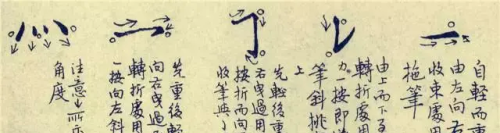 自輕而重
由左向右
收束處用
拖筆
由上而下
轉折處用
力一按即
筆斜挑
上
先輕後重
右曳過用
按折而向
收筆與
先重後輕
向右曳過
轉折處用
一按向左斜
注意↓所示
角度